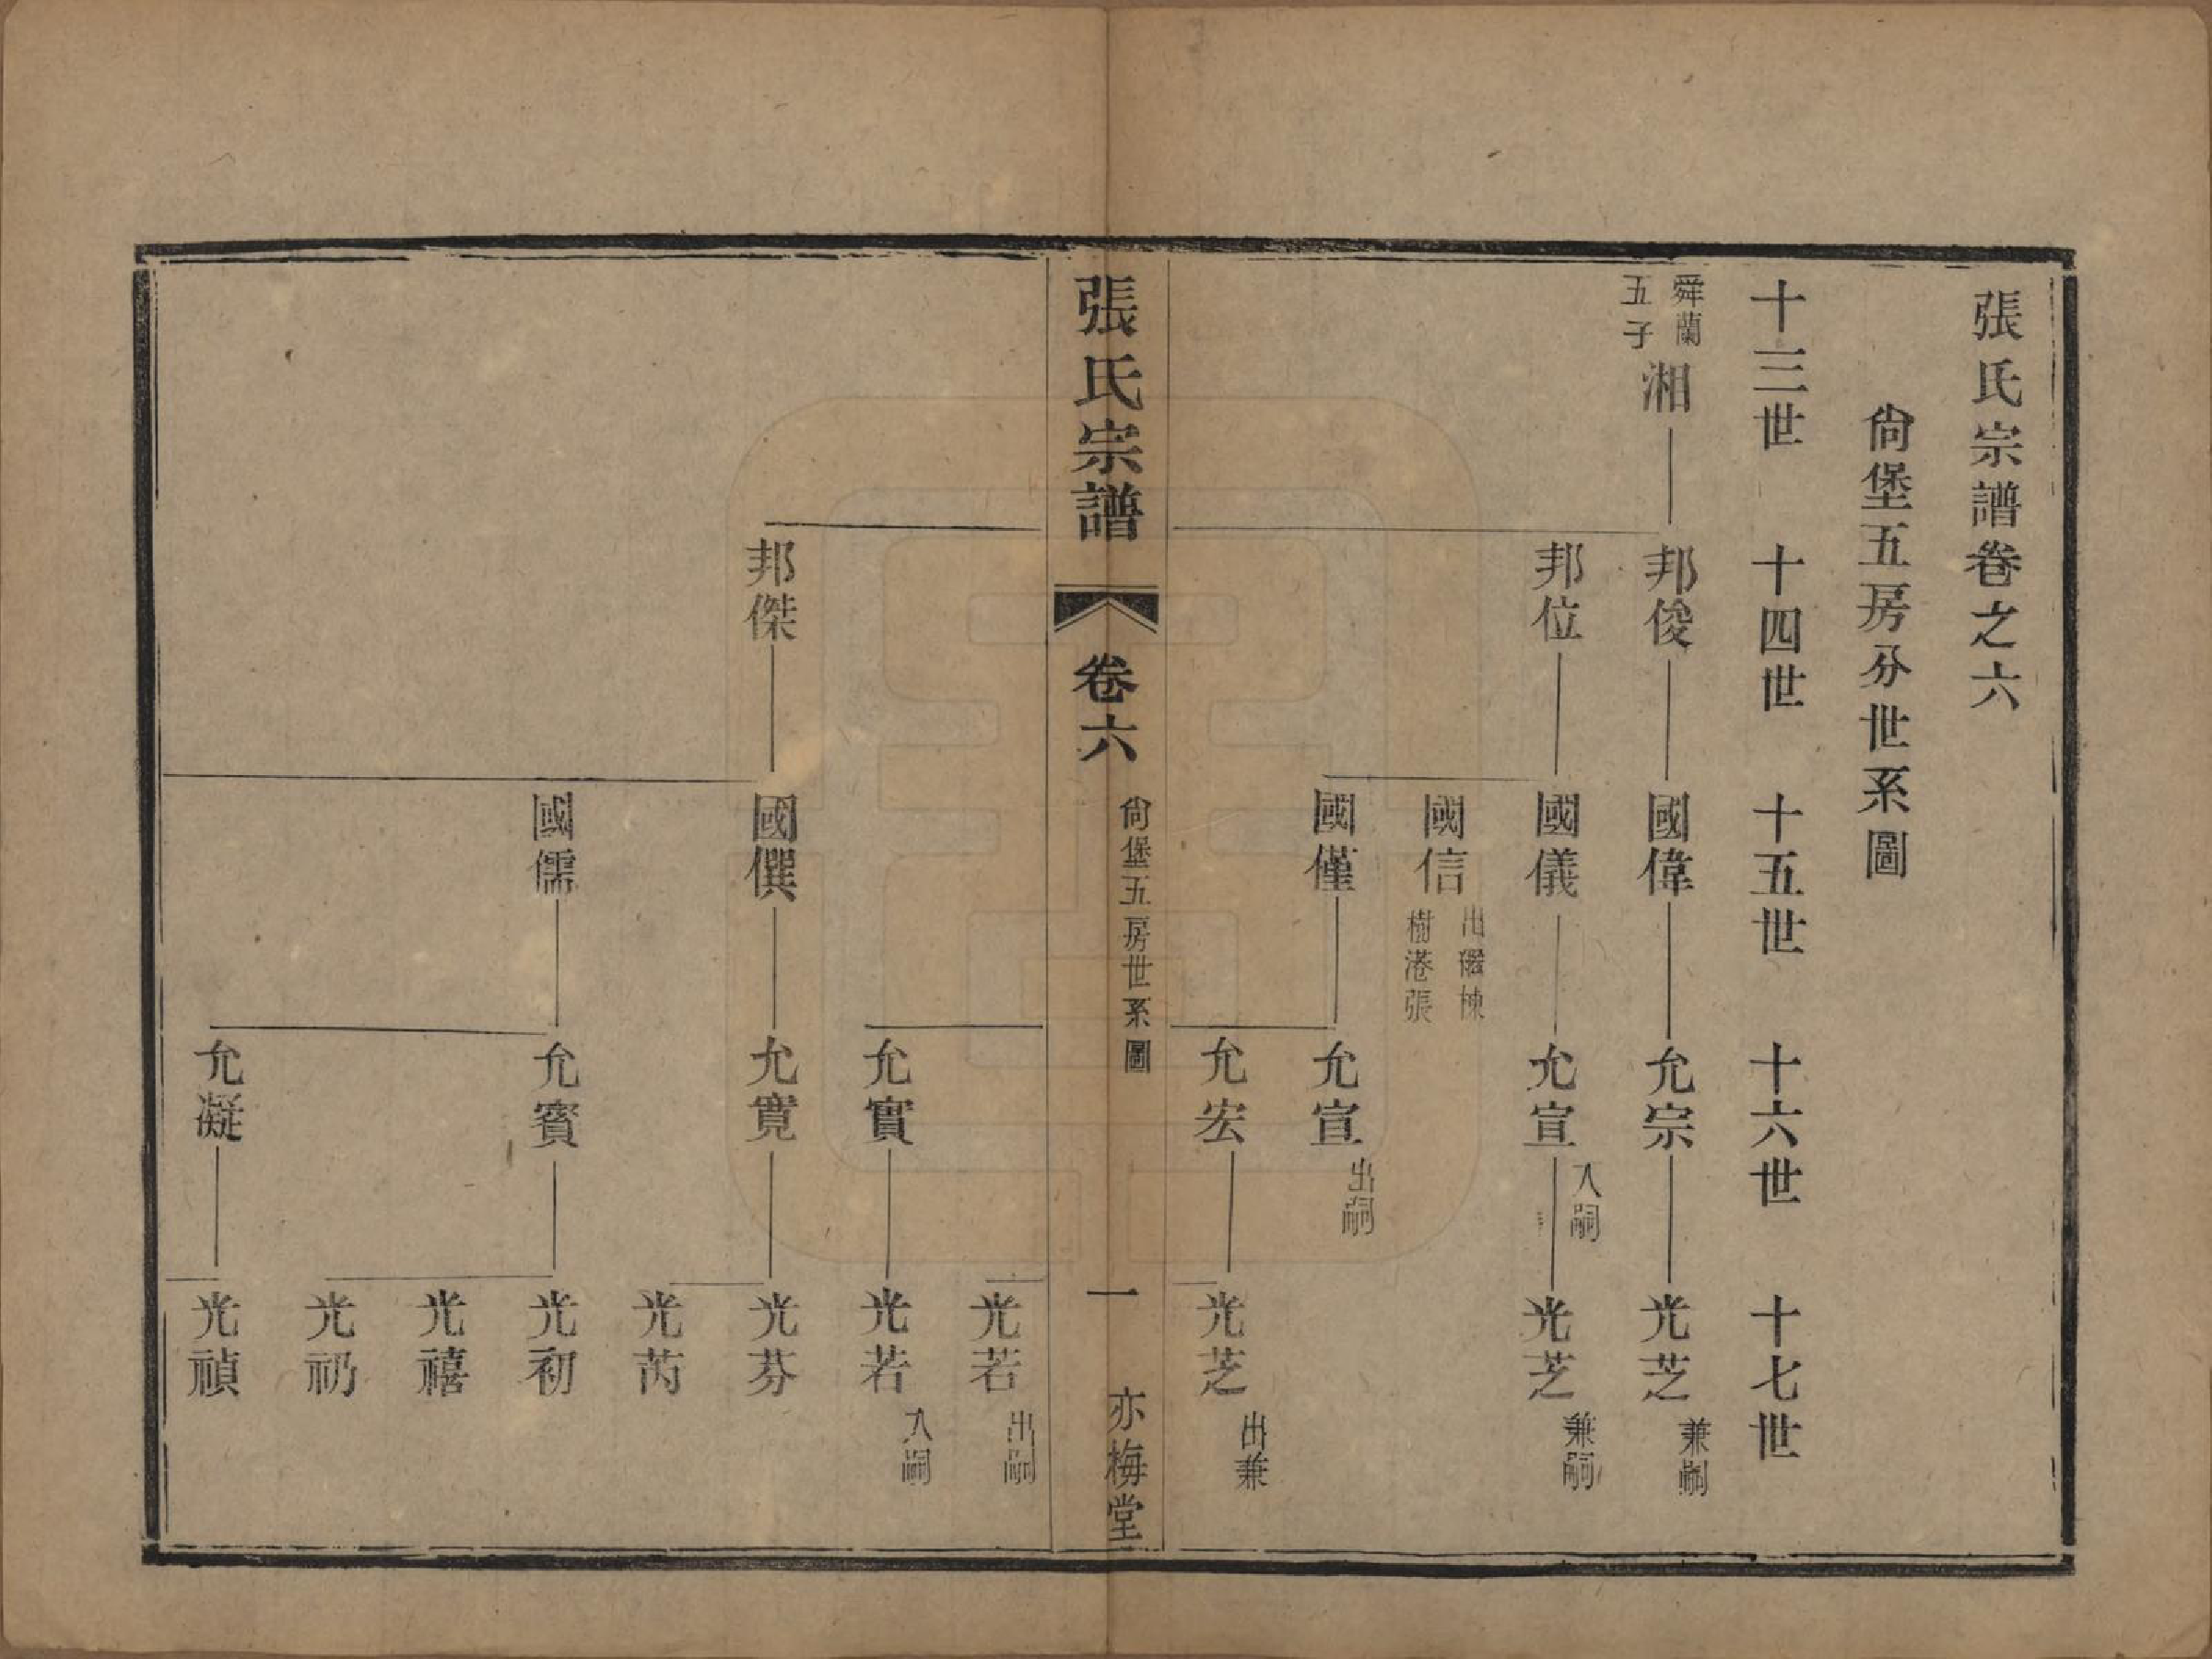 張氏宗譜卷之六
尙堡五房分世系圖
十三世 十四世 十五世 十六世 十七世
舜蘭
五子
湘 邦俊 國偉 允宗 光芝 兼嗣
邦位 國儀 允宣 入嗣 光芝 兼嗣
國信 出繼棟
樹港張
國僅 允宣 出嗣
允宏 光芝 出兼
張氏宗譜 卷六 尙堡五房世系圖 一 亦梅堂
光若 出嗣
允實 光若 入嗣
邦傑 國僎 允寬 光芬
光芮
國儒 允賓 光初
光禧
光礽
允凝 光禎